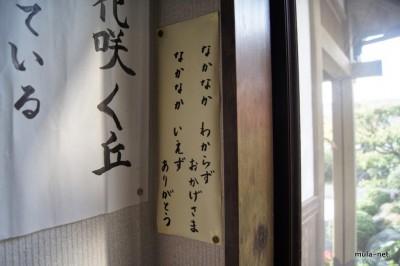 花咲く丘
ている
なかなか わからず
おかげさま
なかなか いえず
ありがとう
mula-net